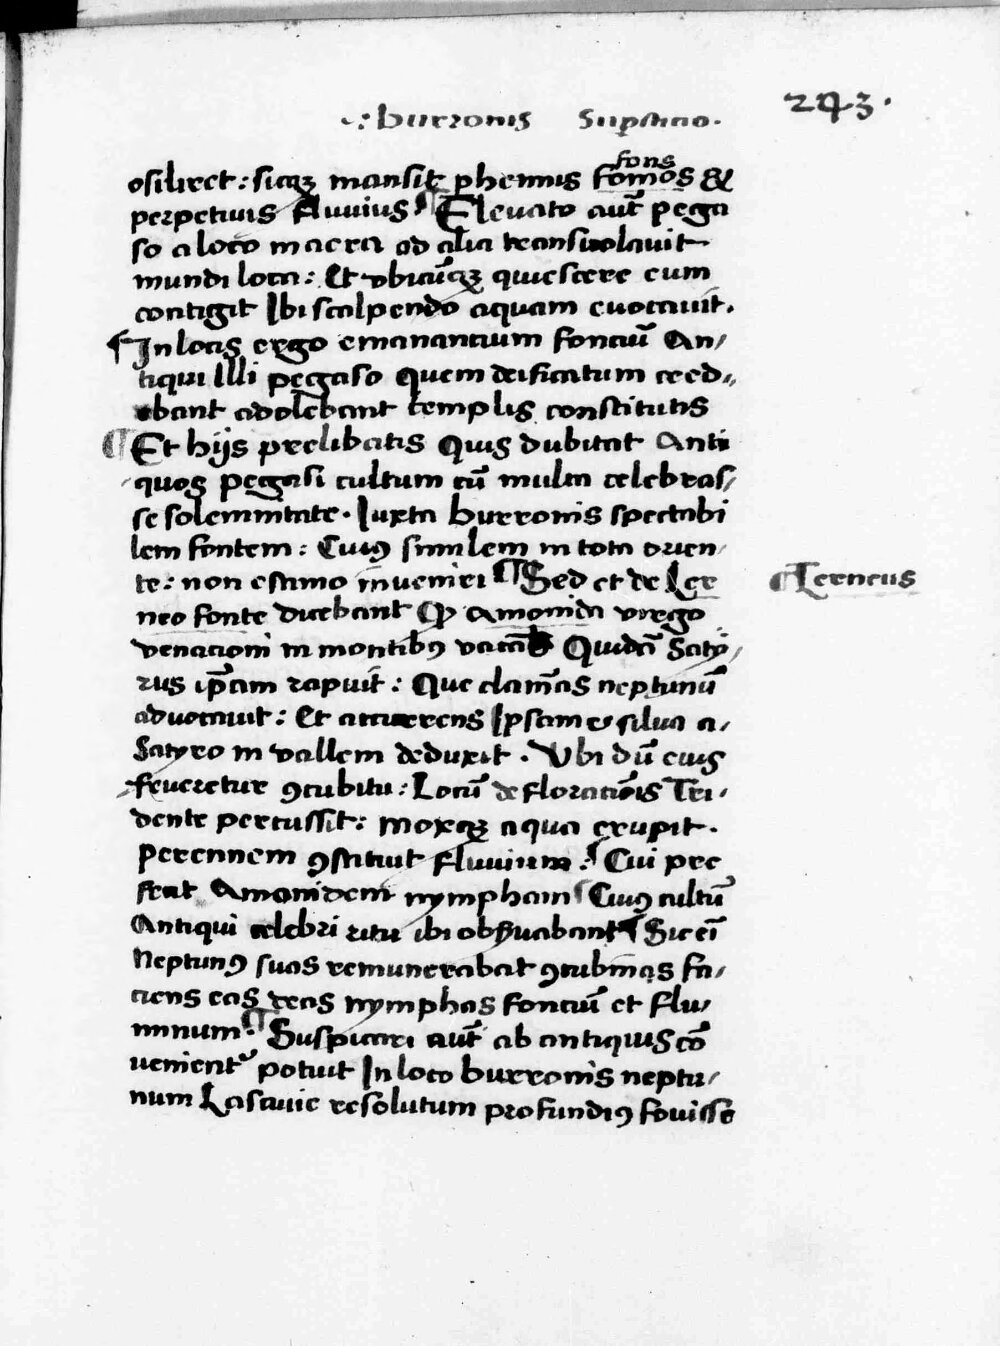 243.
.: burronis Sup̱sticio.
fons
osiliret : sicqꝫ mansit phennis fomos &
perpetuus fluuius ¶ Eleuato aut̄ pega
so a loco macra ad alia transuolauit
mundi loca : Et vbicūqꝫ quiescere eum
contigit Ibi scalpendo aquam euocauit.
¶ In locis ergo emanancium fonciū An/
tiqui Illi pegaso quem deificatum cred//
ebant adolebant templis constitutis
¶ Et hijs prelibatis Quis dubitat Anti
quos pegasi cultum cū multa celebras/
se solemnitate. Iuxta burronis spectabi
lem fontem : Cuiꝰ similem in tota orien/
te : non estimo inueniri ¶ Sed et de Ler
¶ Lerneus
neo fonte dicebant Ꝙ Amonida virgo
venacioni in montibꝰ vacās Quidā Saty/
rus ip̄am rapuit : Que clamās neptunū
aduocauit : Et accurrens Ipsam e silua a/
Satyro in vallem deduxit. Vbi dū eius
frueretur ꝯcubitu : Locū defloracōis Tri/
dente percussit : moxqꝫ aqua erupit.
Perennem ꝯstituit fluuium : ¶ Cui pre
fecit Amonidem nympham ¶ Cuiꝰ cultū
Antiqui celebri ritu ibi obẜuabant ¶ Sic eī
Neptunꝰ suas remunerabat ꝯcubinas fa/
ciens eas deas nymphas fonciū et flu/
minum. ¶ Suspicari aut̄ ab antiquis cō
uenient᷑ potuit In loco burronis neptu/
num Lasciuie resolutum profundiꝰ fouisse